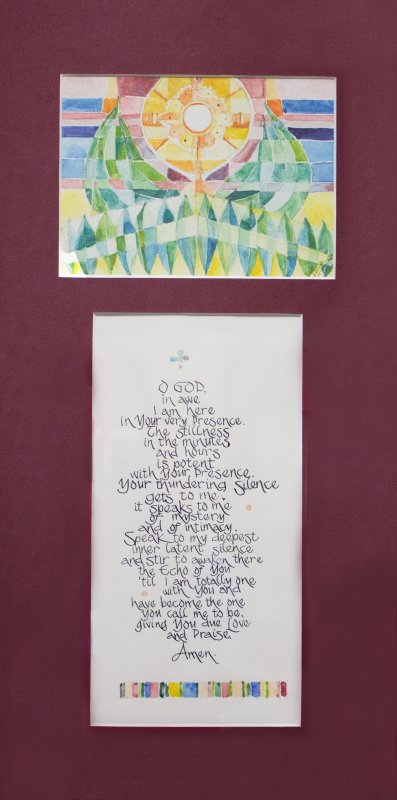 O GOD,
in awe
I am here
in Your very presence.
The stillness
in the minutes
and hours
is potent
with Your Presence.
Your thundering silence
gets to me,
it speaks to me
of mystery
and of intimacy.
Speak to my deepest
inner latent silence
and stir to awaken there
the Echo of You
'til I am totally one
with You and
have become the one
You call me to be,
giving You due Love
and Praise.
Amen.